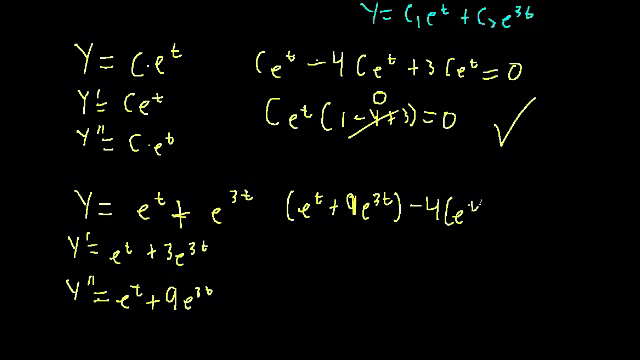 y = c₁eᵗ + c₂e³ᵗ
y = c·eᵗ
y' = ceᵗ
y'' = c·eᵗ
ceᵗ - 4ceᵗ + 3ceᵗ = 0
ceᵗ(1 - 4 + 3) = 0 ✓
0
y = eᵗ + e³ᵗ
y' = eᵗ + 3e³ᵗ
y'' = eᵗ + 9e³ᵗ
(eᵗ + 9e³ᵗ) - 4(eᵗ